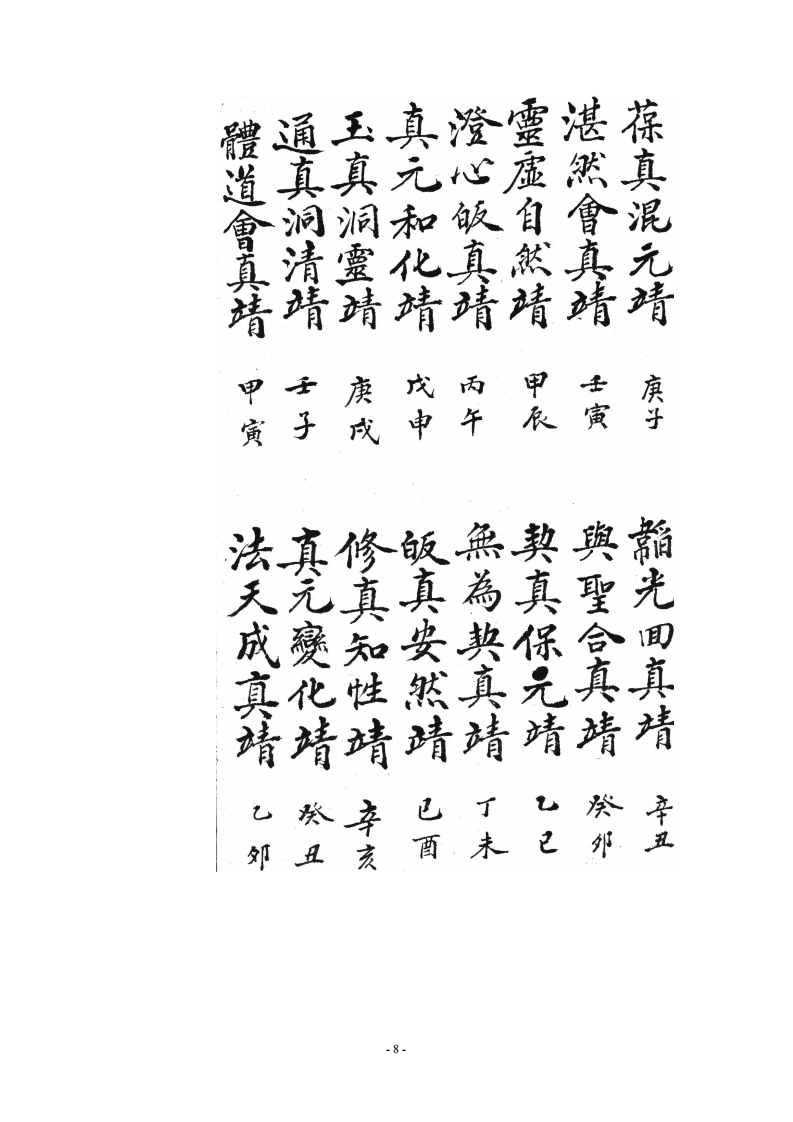 葆真混元靖 庚子
湛然會真靖 壬寅
靈虛自然靖 甲辰
澄心皈真靖 丙午
真元和化靖 戊申
玉真洞靈靖 庚戌
通真洞清靖 壬子
體道會真靖 甲寅
韜光回真靖 辛丑
與聖合真靖 癸卯
契真保元靖 乙巳
無為契真靖 丁未
皈真安然靖 已酉
修真知性靖 辛亥
真元變化靖 癸丑
法天成真靖 乙卯
- 8 -